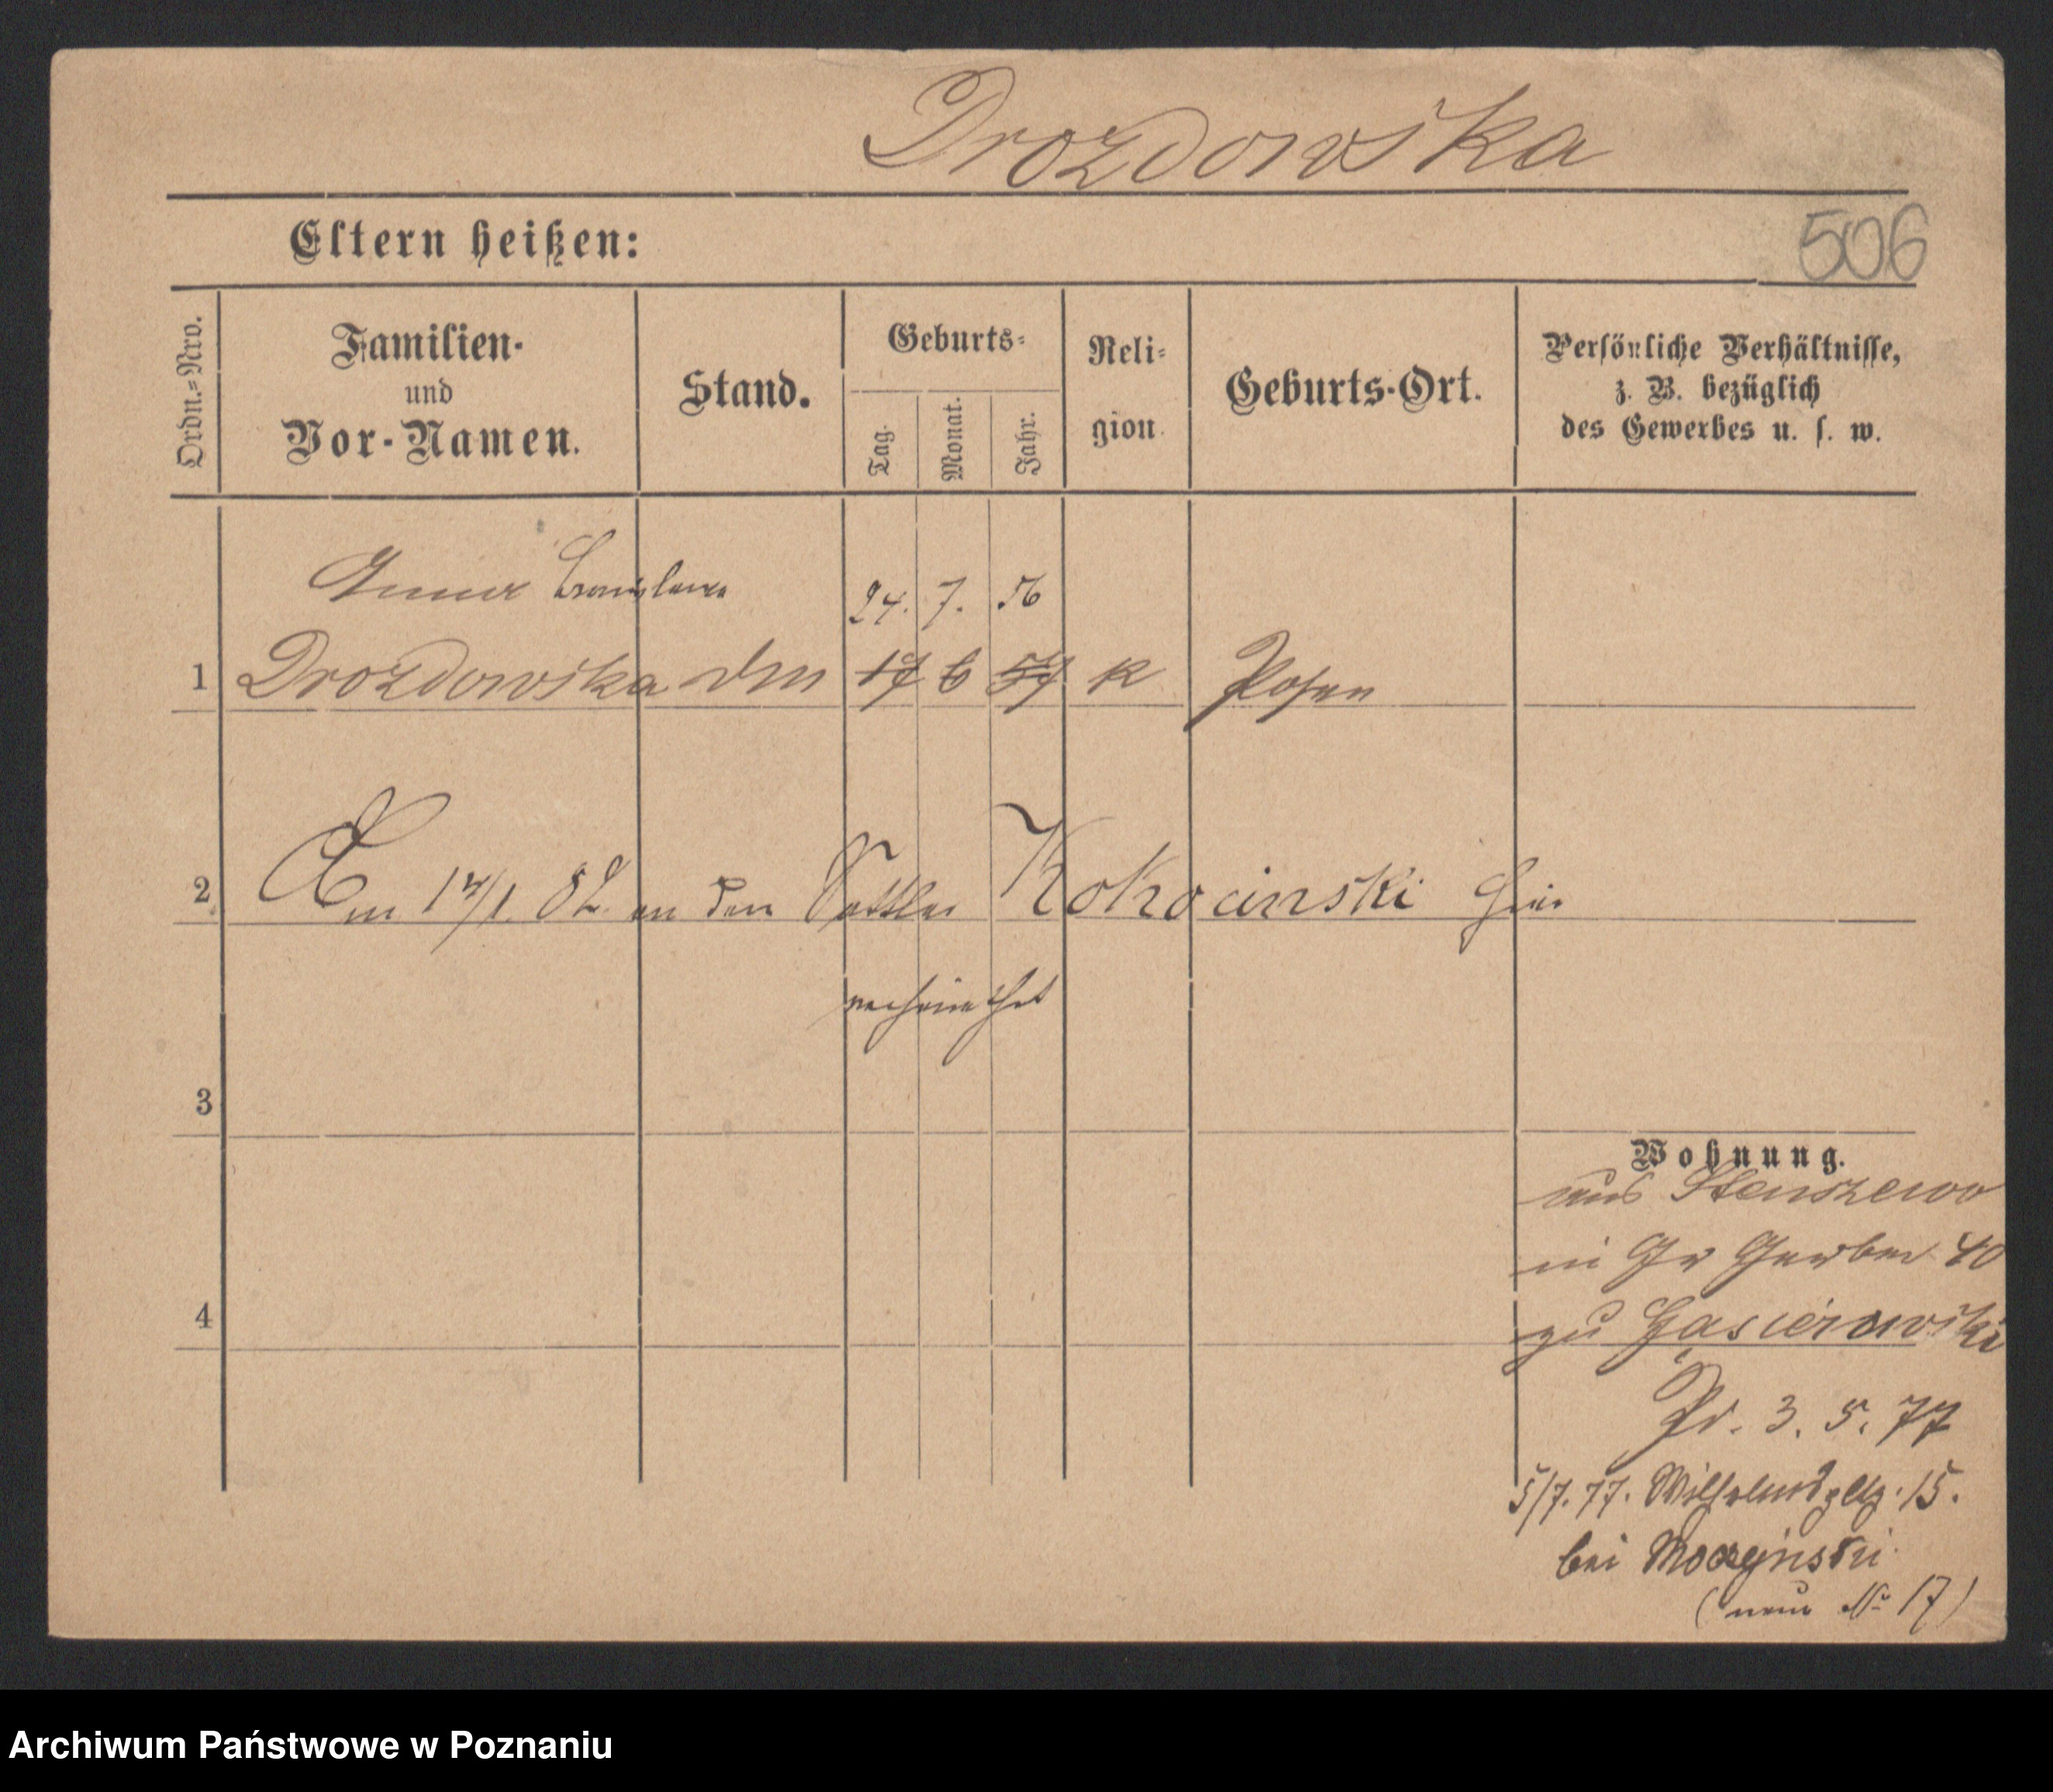 Drozdowska
Eltern heißen:
506
Ordn.-Nro.
Familien-
und
Vor-Namen.
Stand.
Geburts-
Tag.
Monat.
Jahr.
Reli-
gion
Geburts-Ort.
Persönliche Verhältnisse,
z. B. bezüglich
des Gewerbes u. s. w.
Anna Bronislawa 24. 7. 56
1 Drozdowska 17 6 57 K Posen
2 Am 17/1. 82 an den Sattler Kokocinski hier
verheirathet
3
Wohnung.
aus Stenszewo
in Gr Gerber 40
4
zu Gąsierowski
Pr. 3. 5. 77
5/7. 77. Wilhelmspltz. 15.
bei
(neue No 17)
Archiwum Państwowe w Poznaniu